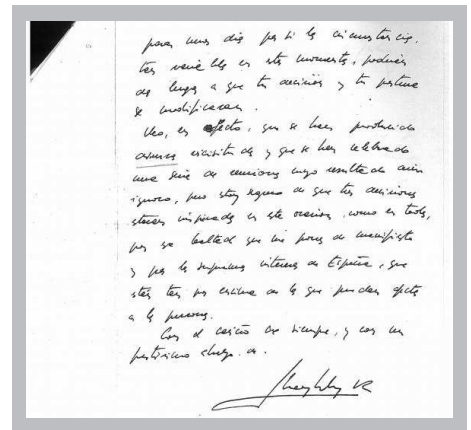 pasar unos días por si las circunstancias,
tan variables en este momento, podían
dar lugar a que tu decisión y tu postura
se modificaran.
Veo, en efecto, que se han producido
y que se han celebrado
una serie de reuniones cuyo resultado aún
ignoro, pero estoy seguro de que tus decisiones
estarán inspiradas en esta ocasión, como en todas,
por
y por los supremos intereses de España, que
están tan por encima de lo que pueda afectar
a las personas.
Con el cariño de siempre, y con un
fortísimo abrazo de